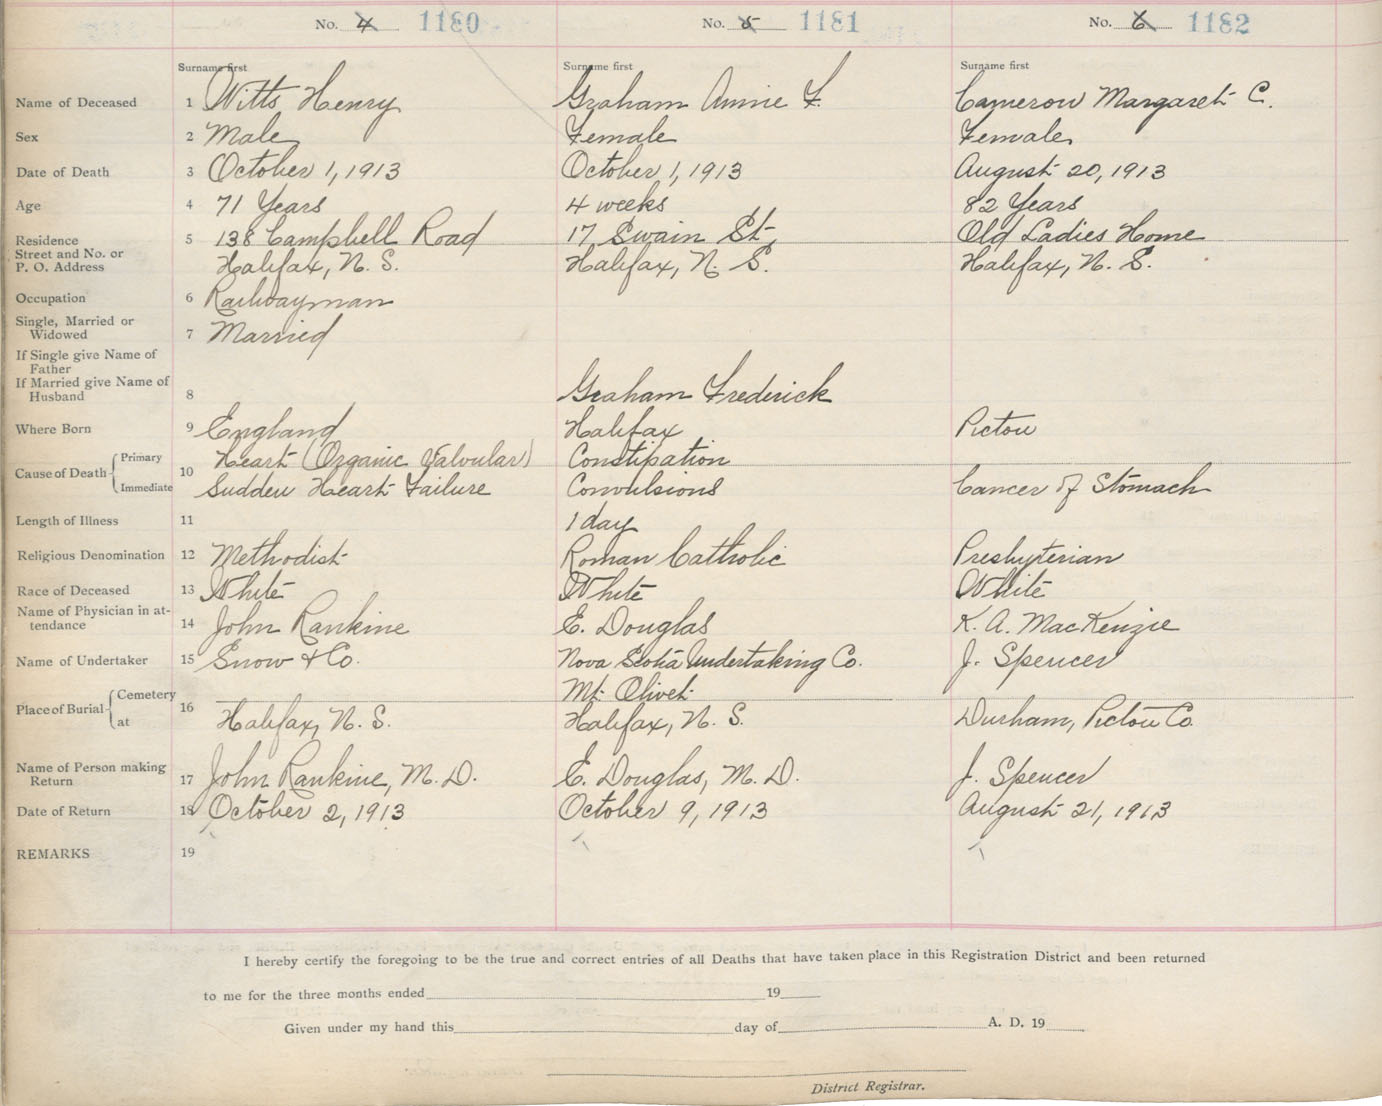 No. 4 1180 No. 5 1181 No. 6 1182
Surname first Surname first Surname first
Name of Deceased 1 Witts Henry Graham Annie F. Cameron Margaret C.
Sex 2 Male Female Female
Date of Death 3 October 1, 1913 October 1, 1913 August 20, 1913
Age 4 71 Years 4 weeks 82 Years
Residence 5 138 Campbell Road 17 Swain St, Old Ladies Home
Street and No. or
P. O. Address Halifax, N. S. Halifax, N. S. Halifax, N. S.
Occupation 6 Railwayman
Single, Married or
Widowed 7 Married
If Single give Name of
Father
If Married give Name of
Husband 8 Graham Frederick
Where Born 9 England Halifax Pictou
Cause of Death Primary 10 Heart (Organic Valvular) Constipation
Immediate Sudden Heart Failure Convulsions Cancer of Stomach
Length of Illness 11 1 day
Religious Denomination 12 Methodist Roman Catholic Presbyterian
Race of Deceased 13 White White White
Name of Physician in at-
tendance 14 John Rankine E. Douglas K. A. MacKenzie
Name of Undertaker 15 Snow & Co. Nova Scotia Undertaking Co. J. Spencer
Place of Burial Cemetery 16 Mt. Olivet
at Halifax, N. S. Halifax, N. S. Durham, Pictou Co.
Name of Person making
Return 17 John Rankine, M. D. E. Douglas, M. D. J. Spencer
Date of Return 18 October 2, 1913 October 9, 1913 August 21, 1913
REMARKS 19
I hereby certify the foregoing to be the true and correct entries of all Deaths that have taken place in this Registration District and been returned
to me for the three months ended 19
Given under my hand this day of A. D. 19
District Registrar.